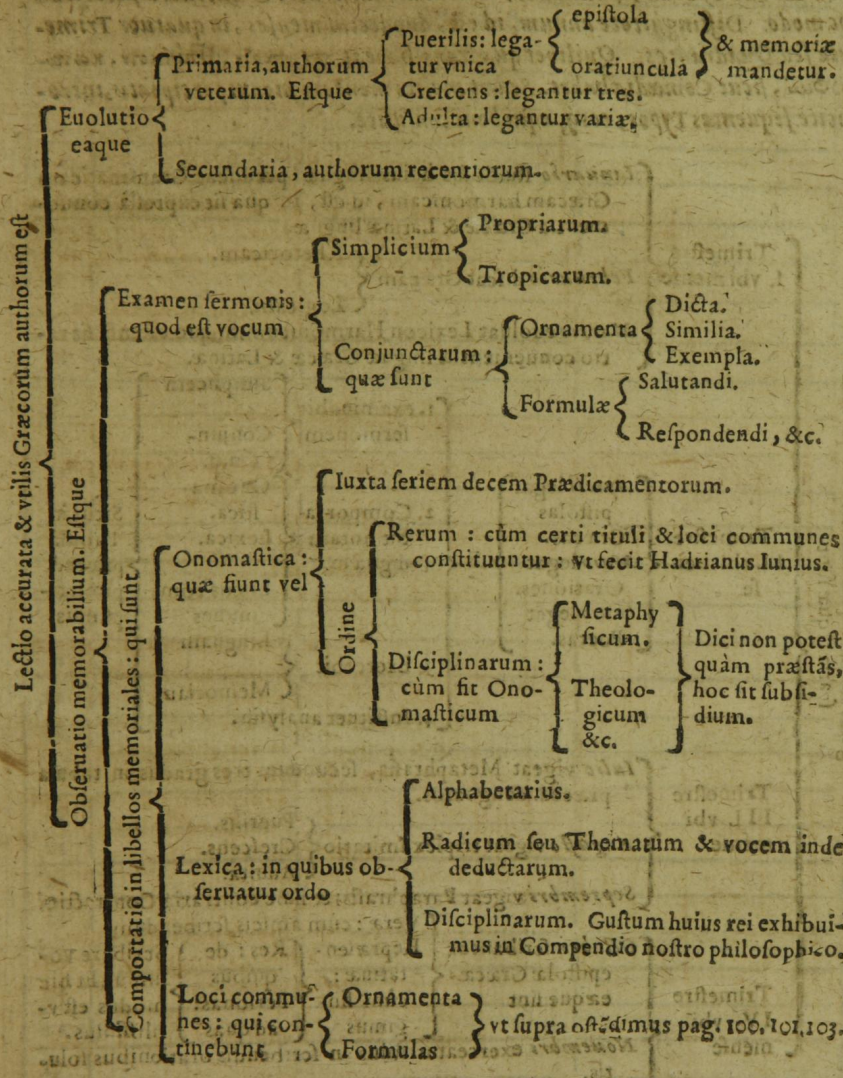 Lectio accurata & vtilis Græcorum authorum eſt
Euolutio
eaque
Primaria, authorum
veterum. Eſtque
Puerilis: lega-
tur vnica
epiſtola
oratiuncula
& memoriæ
mandetur.
Creſcens : legantur tres.
Adulta : legantur variæ.
Secundaria, authorum recentiorum.
Obſeruatio memorabilium. Eſtque
Examen ſermonis :
quod eſt vocum
Simplicium
Propriarum.
Tropicarum.
Conjunctarum :
quæ ſunt
Ornamenta
Dicta.
Similia.
Exempla.
Formulæ
Salutandi.
Reſpondendi, &c.
Comportatio in libellos memoriales : qui ſunt
Onomaſtica :
quæ fiunt vel
Iuxta ſeriem decem Prædicamentorum.
Ordine
Rerum : cùm certi tituli & loci communes
conſtituuntur : vt fecit Hadrianus Iunius.
Diſciplinarum :
cùm fit Ono-
maſticum
Metaphy
ſicum.
Theolo-
gicum
&c.
Dici non poteſt
quàm præſtãs,
hoc ſit ſubſi-
dium.
Lexica : in quibus ob-
ſeruatur ordo
Alphabetarius.
Radicum ſeu Thematum & vocem inde
deductarum.
Diſciplinarum. Guſtum huius rei exhibui-
mus in Compendio noſtro philoſophico.
Loci commu-
nes : qui con-
tinebunt
Ornamenta
Formulas
vt ſupra oſtẽdimus pag. 100. 101. 103.